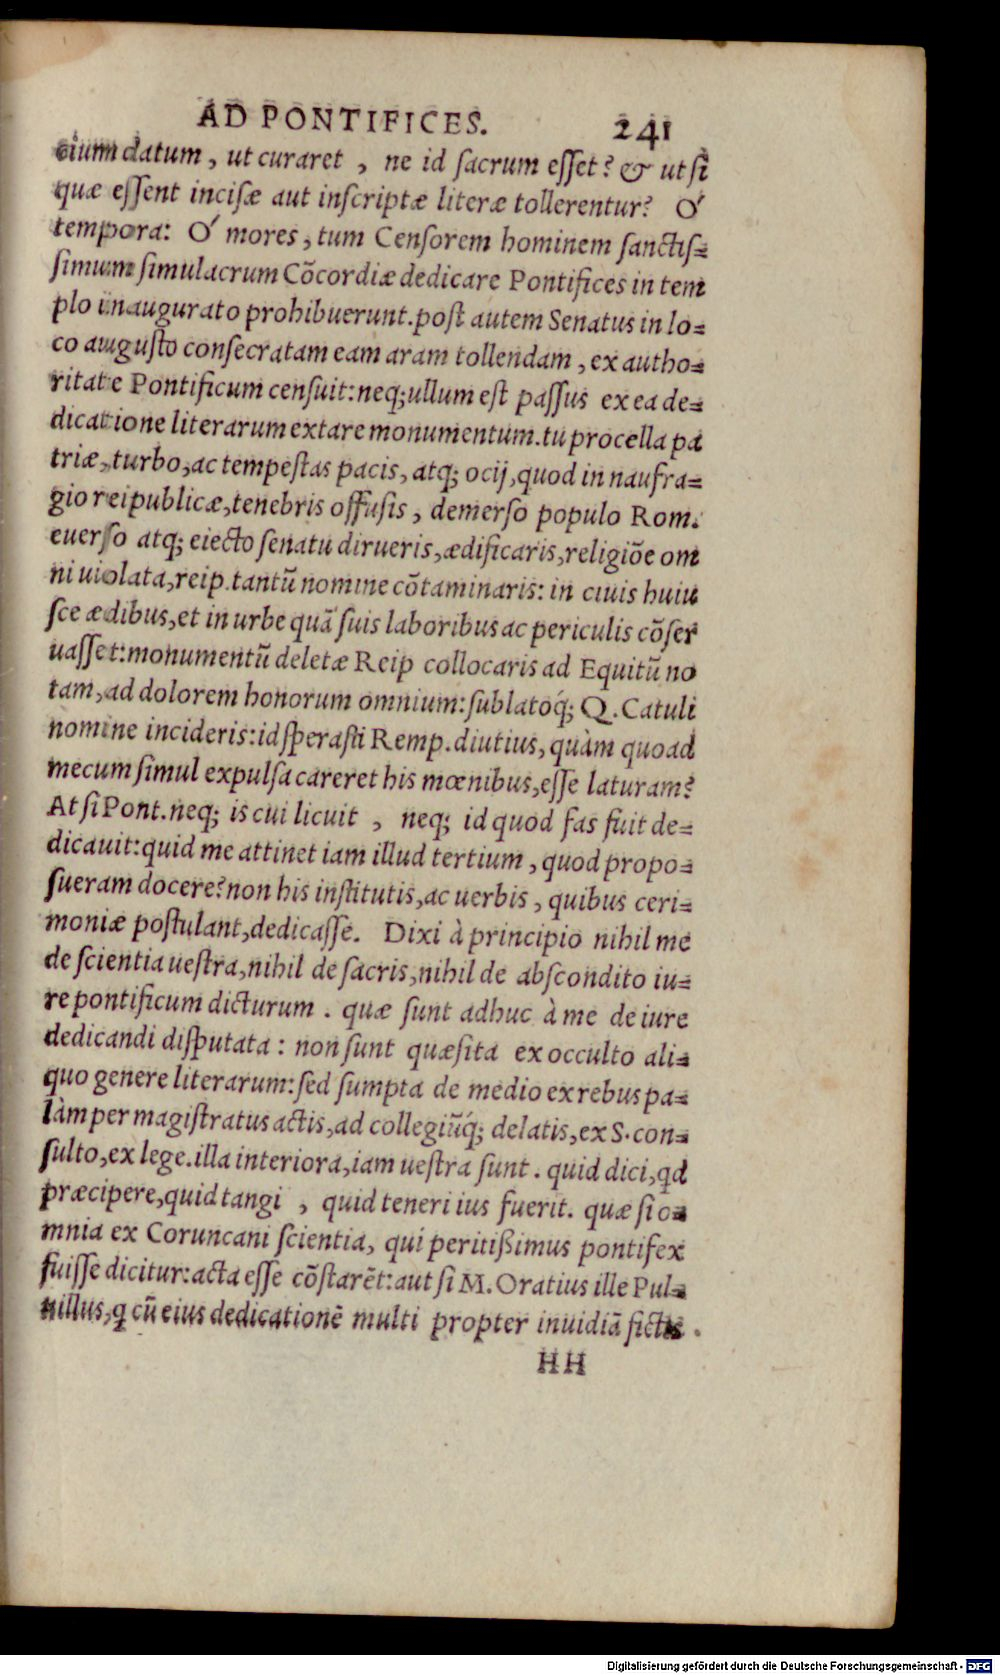 AD PONTIFICES. 241
cium datum, ut curaret, ne id sacrum esset? & ut si
quæ essent incisæ aut inscriptæ literæ tollerentur? Ó
tempora: Ó mores, tum Censorem hominem sanctis=
simum simulacrum Cõcordiæ dedicare Pontifices in tem
plo inaugurato prohibuerunt. post autem Senatus in lo=
co augusto consecratam eam aram tollendam, ex autho=
ritate Pontificum censuit: neq; ullum est passus ex ea de=
dicatione literarum extare monumentum. tu procella pa
triæ, turbo, ac tempestas pacis, atq; ocij, quod in naufra=
gio reipublicæ, tenebris offusis, demerso populo Rom.
euerso atq; eiecto senatu dirueris, ædificaris, religiõe om
ni uiolata, reip. tantũ nomine cõtaminaris: in ciuis huiu
sce ædibus, et in urbe quã suis laboribus ac periculis cõser
uasset: monumentũ deletæ Reip collocaris ad Equitũ no
tam, ad dolorem honorum omnium: sublatoq́; Q. Catuli
nomine incideris: id sperasti Remp. diutius, quàm quoad
mecum simul expulsa careret his mœnibus, esse laturam?
At si Pont. neq; is cui licuit, neq; id quod fas fuit de=
dicauit: quid me attinet iam illud tertium, quod propo=
sueram docere? non his institutis, ac uerbis, quibus ceri=
moniæ postulant, dedicasse. Dixi à principio nihil me
de scientia uestra, nihil de sacris, nihil de abscondito iu=
re pontificum dicturum. quæ sunt adhuc à me de iure
dedicandi disputata: non sunt quæsita ex occulto ali=
quo genere literarum: sed sumpta de medio ex rebus pa=
làm per magistratus actis, ad collegiũq́; delatis, ex S. con=
sulto, ex lege. illa interiora, iam uestra sunt. quid dici, qd
præcipere, quid tangi, quid teneri ius fuerit. quæ si o=
mnia ex Coruncani scientia, qui peritißimus pontifex
fuisse dicitur: acta esse cõstarẽt: aut si M. Oratius ille Pul=
uillus, q cũ eius dedicationẽ multi propter inuidiã fictis.
HH
Digitalisierung gefördert durch die Deutsche Forschungsgemeinschaft - DFG